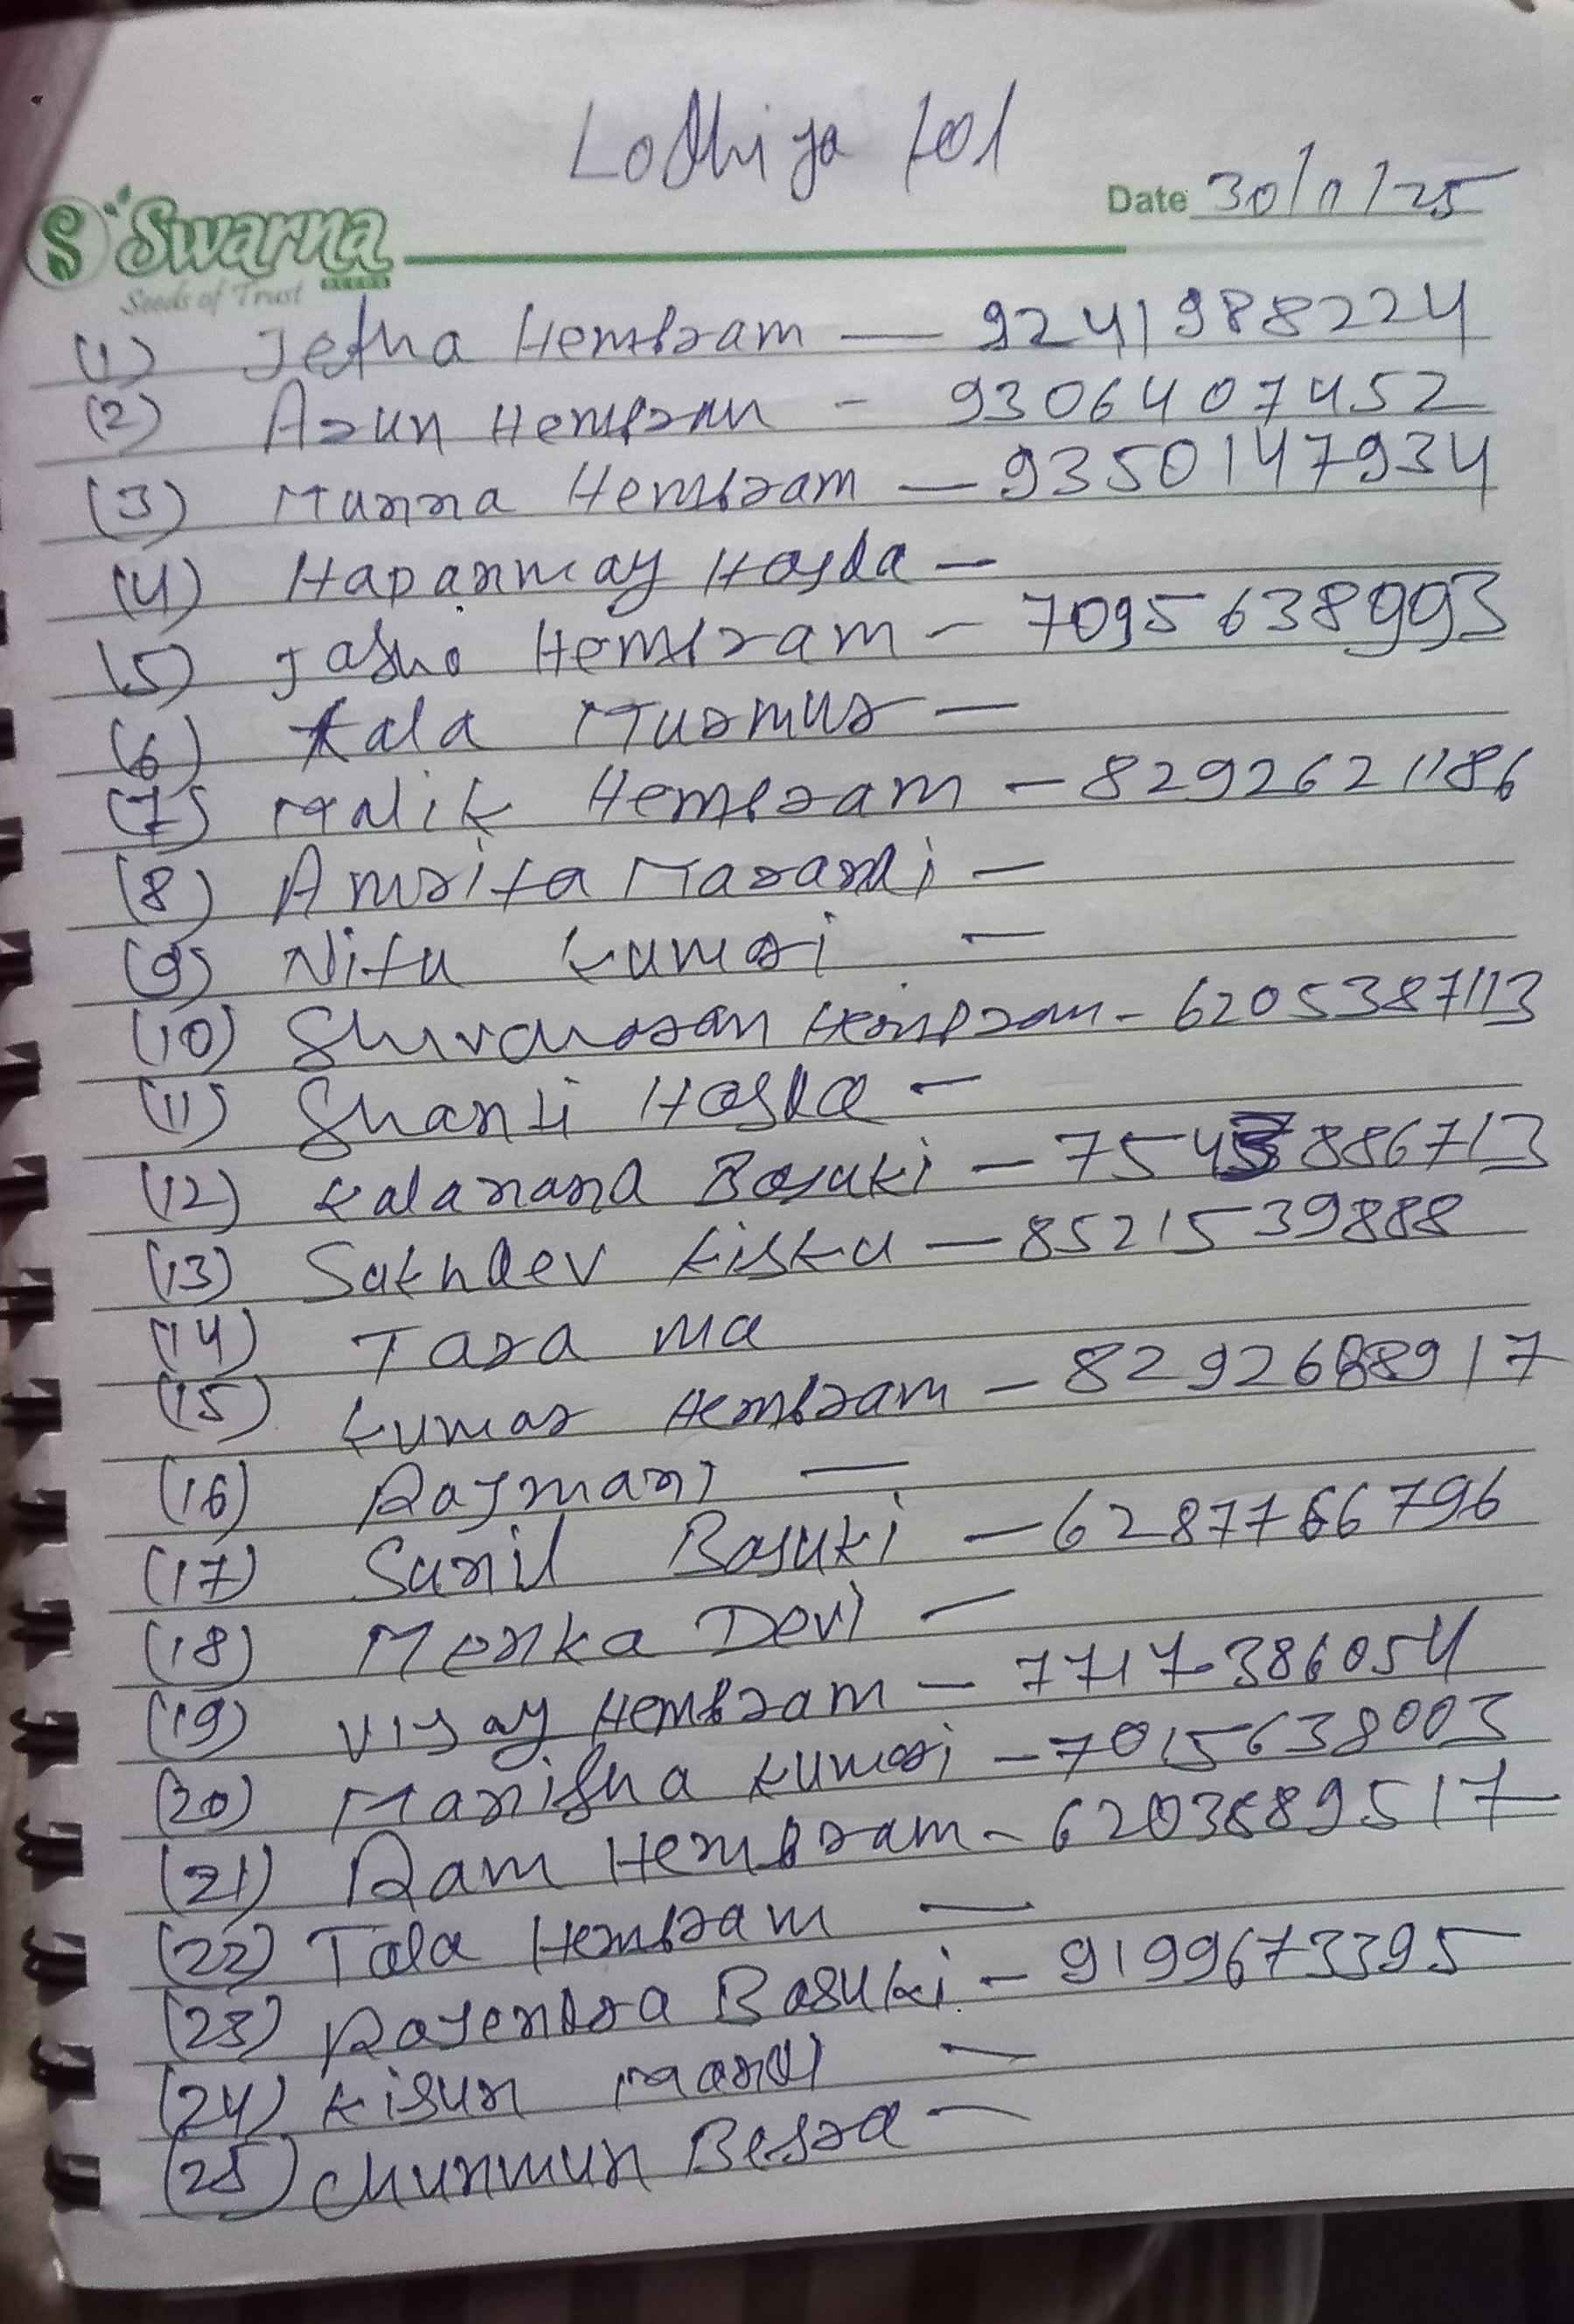 Lodhiya tol
Date 30/11/25
S Swarna
SEEDS
Seeds of Trust
(1) Jetha Hembram — 9241988224
(2) Arun Hembram - 9306407452
(3) Munna Hembram — 9350147934
(4) Hapanmay Hasda —
(5) Jasho Hembram - 7095638993
(6) Kala Murmur —
(7) Malik Hembram — 8292621186
(8) Amrita Marandi —
(9) Nitu Kumari —
(10) Hembram - 6205387113
(11) Shanti Hasda —
(12) Kalanand Basuki — 7543886713
(13) Sukhdev Kisku — 8521539888
(14) Tara Ma
(15) Kumar Hembram — 8292688917
(16) Rajmani —
(17) Sunil Basuki — 6287766796
(18) Menka Devi —
(19) Vijay Hembram — 7717386054
(20) Manisha Kumari — 7015638003
(21) Ram Hembram - 6203889517
(22) Tala Hembram —
(23) Rajendra Basuki - 9199673395
(24) Kisun Mardi —
(25) Chunmun Besra —